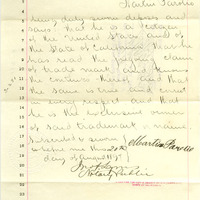 being duly sworn deposes and
says: That he is a citizen
of the United States and of
the State of California. That he
has read the foregoing claim
of trade mark and knows
the contents thereof and that
the same is true and correct
in every respect and that
he is the exclusive owner
of said trademark & name.
Subscribed & sworn
to before me this 20th
day of August
Notary Public